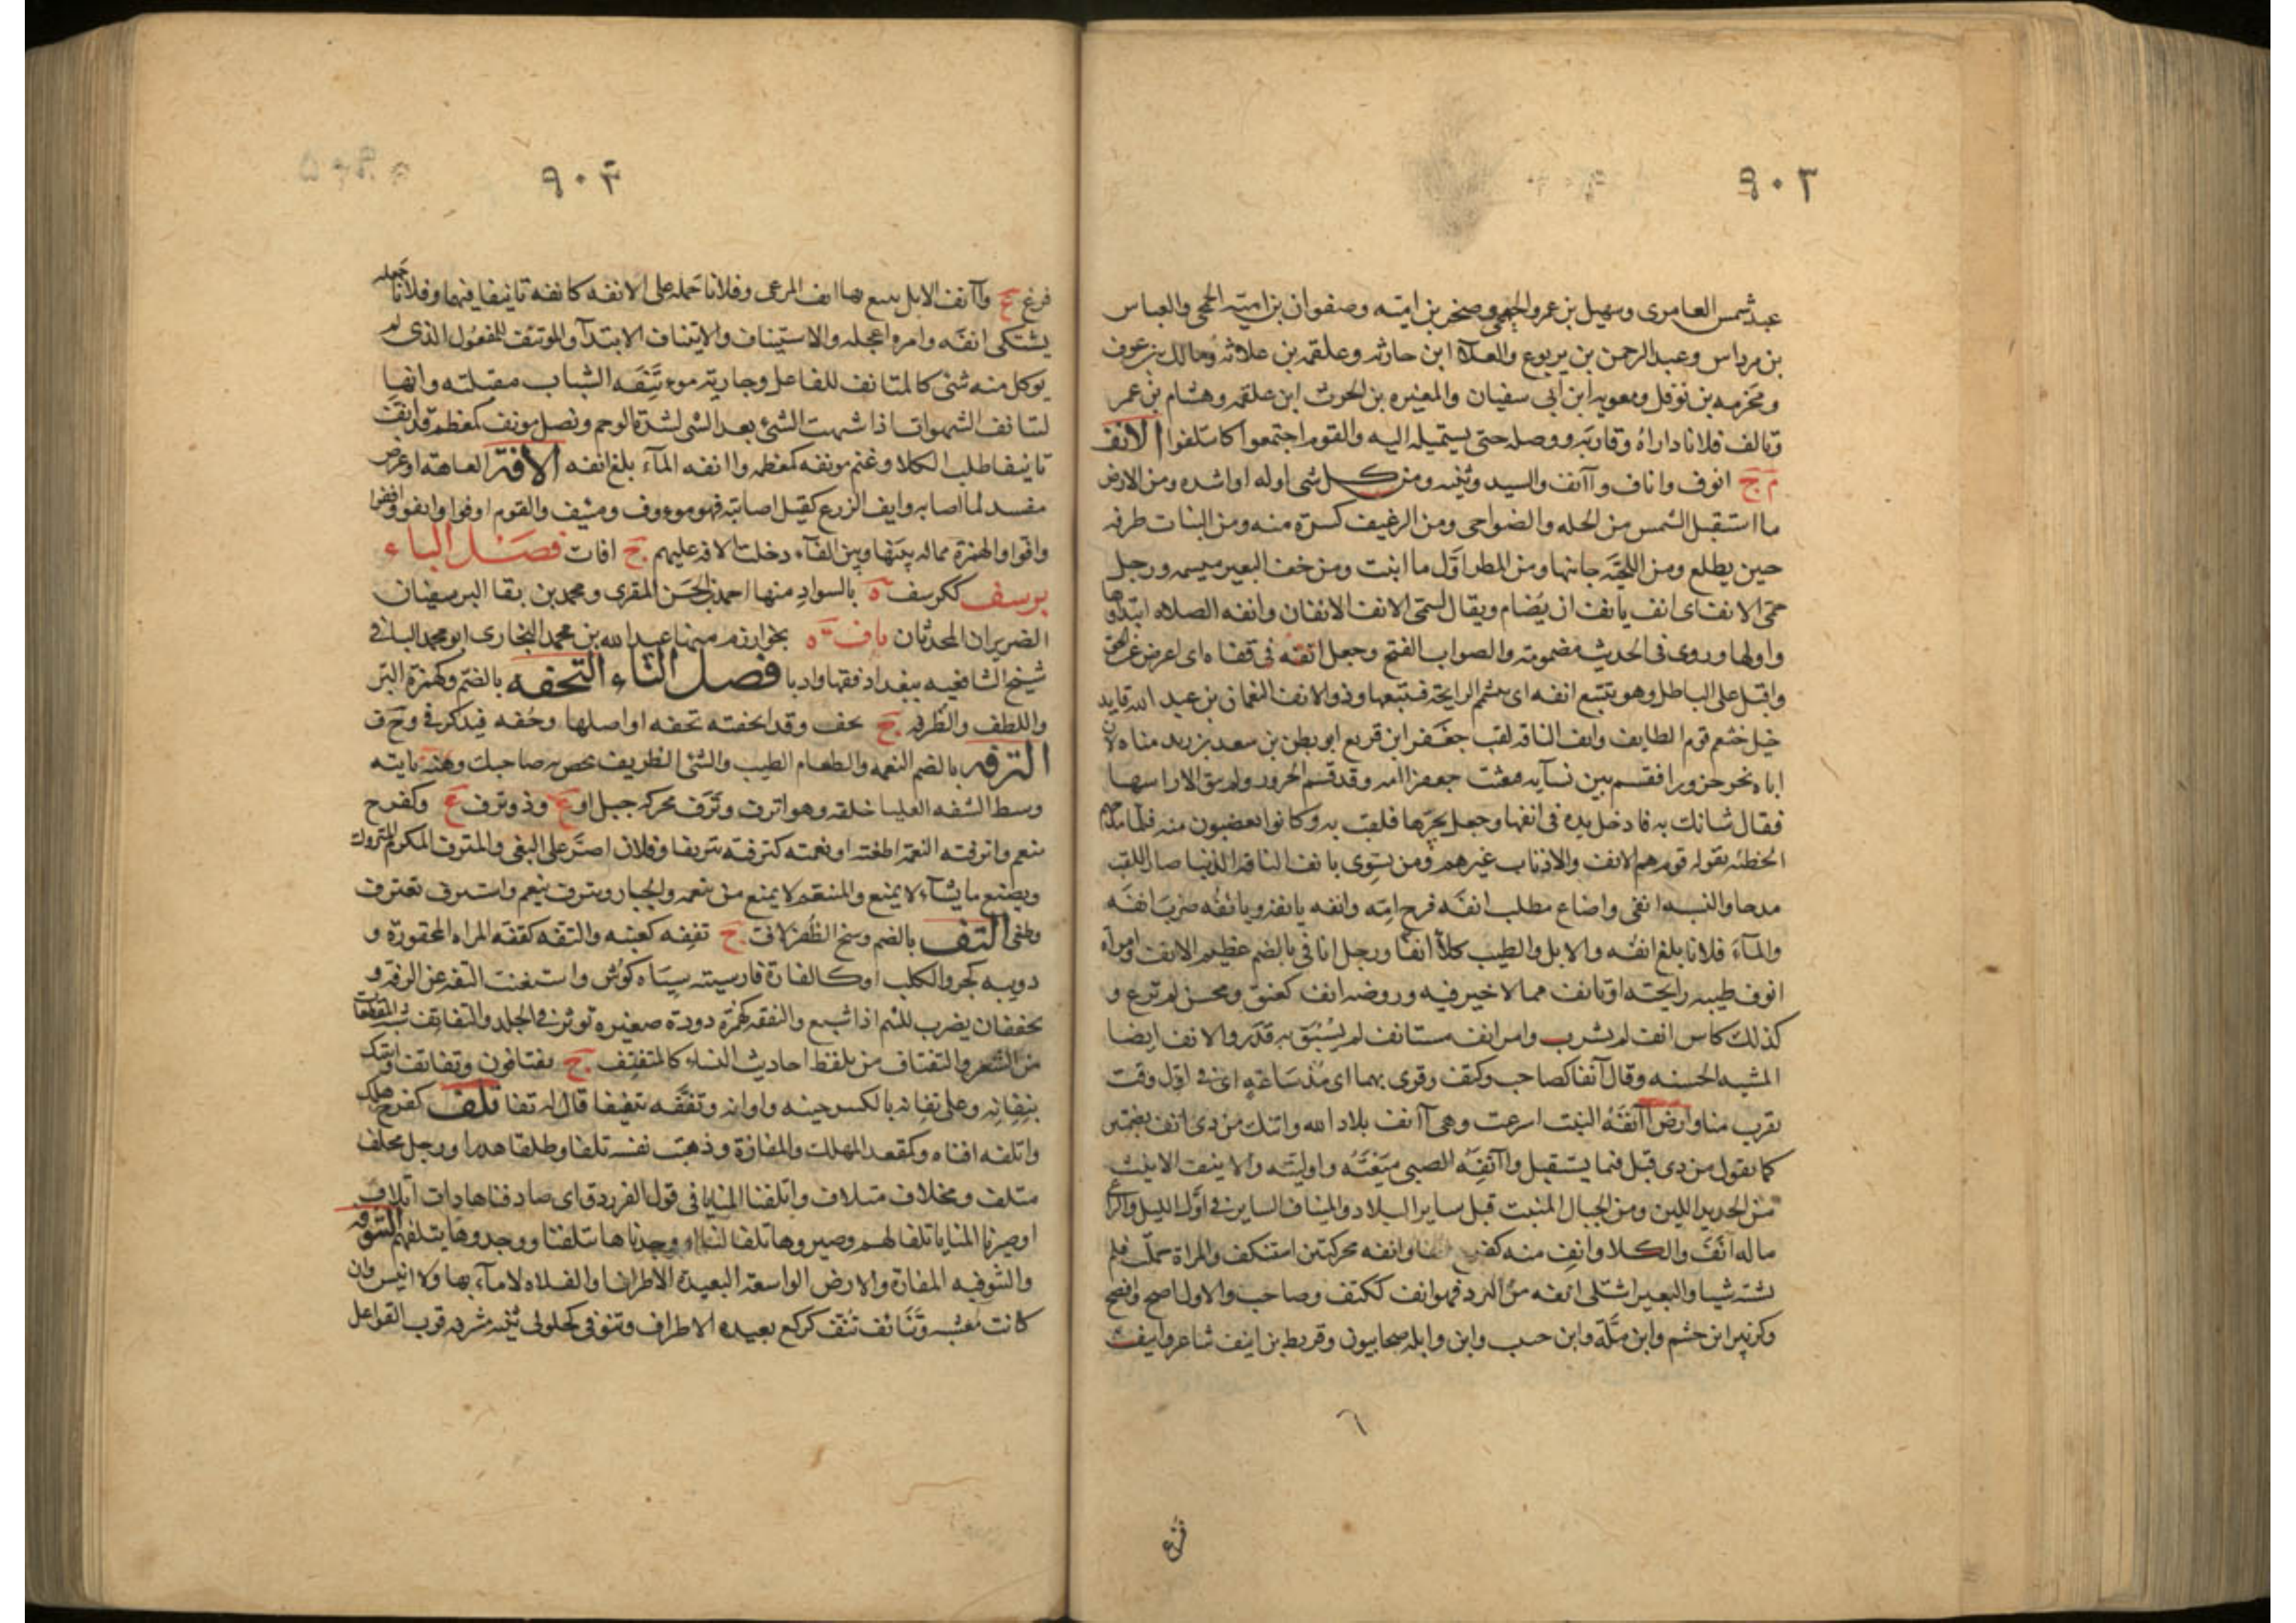 ٩٠٢
عبد شمس العامري وسهيل بن عمرو الجمحي وصخر بن اميته وصفوان بن اميته الجمحي والعباس
بن مرداس وعبد الرحمن بن يربوع والعلاء ابن حارثه وعلقمه بن علاثه ومالك بن عوف
ومخرمه بن نوفل ومعويه ابن ابي سفيان والمغيره بن الحرث ابن علقمه وهشام بن عمر
وتالف فلانا داراه وقاربه ووصله حتى يستميله اليه والقوم اجتمعوا كائتلفوا الانف
م ج انوف واناف وآانف والسيد وثنيه ومن كل شي اوله او اشده ومن الارض
ما استقبل الشمس من الجله والضواحي ومن الرغيف كسرة منه ومن النبات طرفه
حين يطلع ومن اللحيَّه جانبها ومن المطر اوَّل ما انبت ومن خف البعير ميسمه ورجل
حمّى الانف اى انف يانف ان يُضام ويقال لسمَّى الانف الانفان وانفه الصلاه ابتداوها
واولها وروى فى الحديث مضمومته والصواب الفتح وجعل انفه فى قفاه اى اعرض عن الحق
واقبل على الباطل وهو يتتبع انفه اى يشمّ الرايحة فيتبعها وذو الانف النعمان بن عبد الله قايد
خيل خثعم يوم الطايف وانف الناقه لقب جعفر ابن قريع ابو بطن بن سعد بن زيد مناه لان
اباه نحر جزورا فقسم بين نسآيه فبعثت جعفرا امه وقد قسم الجزور ولم يبق الا راسها
فقال شانك به فادخل يده فى انفها وجعل يجرّها فلقب به وكانوا يغضبون منه فلما مدحهم
الحطئه بقوله قوم هم الانف والاذناب غيرهم ومن يسوى بانف الناقة الذنبا صار اللقب
مدحا والنسبه انفى واضاع مطلب انفه فرح امّه وانفه يانفه ويانُفه ضرب انفه
والمآء فلانا بلغ انفه والابل والطيب كلاءً انفا ورجل انافى بالضم عظيم الانف وامراه
انوف طيبه رايحته او تانف مما لا خير فيه وروضه انف كعنق ومحسن لم ترع و
كذلك كاس انف لم يشرب وامر انف مستانف لم يُسْبَق به قدر والانف ايضا
المشيه الحسنه وقال آنفا كصاحب وكتف وقرى بهما اى مُذ ساعةٍ اى فى اول وقت
يقرب منا وارض آنفه النبت اسرعت وهى آانف بلاد الله واتتك من ذى انف بضمتين
كما تقول من ذى قبل فيما يستقبل وآانفه الصبى ميعته واوليته والانيف الانيث
من الحديد اللين ومن الجبال المنبت قبل ساير البلاد والميناف الساير فى اوَّل الليل والراع
ماله انف والكلاء وانف منه كفرح انفا وانفه محركتين استنكف والمراة حملت فلم
تشته شيا والبعير اشتكى انفه من البرد فهو انف ككتف وصاحب والاول اصح وافصح
وكزبير ابن جشم وابن ملَّة وابن حبيب وابن وايله صحابيون وقريط بن انيف شاعر وانيف
فرع
٩٠٣
فرع ع وآانف الابل تتبع بها انف المرعى وفلانا حمله على الانفه كانفه تانيفا فيهما وفلانا جعله
يشتكى انفه وامره اعجله والاستيناف والايتناف الابتدآء والموتنف للمفعول الذى لم
يوكل منه شى كالمتانف للفاعل وجاريه موءتنفه الشباب مقبلته وانها
لتتانف الشهوات اذا شهت الشى بعد الشى لشدة الوحم ونصل مونف كمعظم قد انف
تانيفا طلب الكلاء وغنم مونفه كمعظمه واانفه المآء بلغ انفه الآفة العاهة او عرض
مفسد لما اصابه وايف الزرع كقيل اصابته فهو موءوف ومئيف والقوم اوفوا وايفوا وافوا
وافوا والهمزة مماله بينها وبين الفآء دخلت الافه عليهم ج افات فصل الباء
برسف ككرسف ة بالسواد منها احمد بن الحسَن المقرى ومحمد بن بقا البرسفيان
الضريران المحدثان باف ة بخوارزم منها عبد الله بن محمد البخارى ابو محمد البافى
شيخ الشافعيه ببغداد فقها وادبا فصل التاء التحفه بالضمّ وكهمزة البر
واللطف والطرفه ج تحف وقد اتحفته تحفه او اصلها وحفه فيذكر فى وح ف
الترفه بالضم النعمه والطعام الطيب والشى الظريف تخص به صاحبك وهنه ناتيه
وسط الشفه العليا خلقه وهو اترف وتَرَف محركه جبل او ع وذو ترف ع وكفرح
تنعم واترفته النعمة اطغته او نعمته كترفته تتريفا وفلان اصرَّ على البغى والمترف المكرم المتروك
ويصنع ما يشآء لا يمنع والمتنعم لا يمنع من تنعمه والجبار وتترف تنعم واسترف تغترف
وطغى التف بالضم وسخ الظفر الاف ج تففه كعنبه والتفه كقفه المراه المحقورة و
دويبه كجرو الكلب او كالفارة فارسيته سياه كوش واستغنت التفه عن الرفه و
يخففان يضرب للئيم اذا شبع والتففه كهمزة دودة صغيره توثر فى الجلد والتفاتف شبه المقطعات
من الشعر والتفتاف من يلقط احاديث النسآء كالمتفتف ج تفتافون وتفاتف واتيتك
بتفانه وعلى تفانه بالكسر حينه واوانه وتففه تتفيفا قال له تفا تلف كفرح هلك
واتلفه افناه وكمقعد المهلك والمفازة وذهبت نفسه تلفا وطلفا هدرا ورجل مخلف
متلف ومخلاف متلاف واتلفنا المنايا فى قول الفرزدق اى صادفناها ذات اتلاف
او صيرنا المنايا تلفا لهم وصيروها تلفا لنا او وجدناها تتلفنا ووجدوها يتلفهم التنوفه
والتنوفيه المفازة والارض الواسعة البعيدة الاطراف والفلاه لا مآء بها ولا انيس وان
كانت معشبه وتنائف تنف كركع بعيده الاطراف وتنوفى كجلولى ثنيه مشرفه قرب القواعل